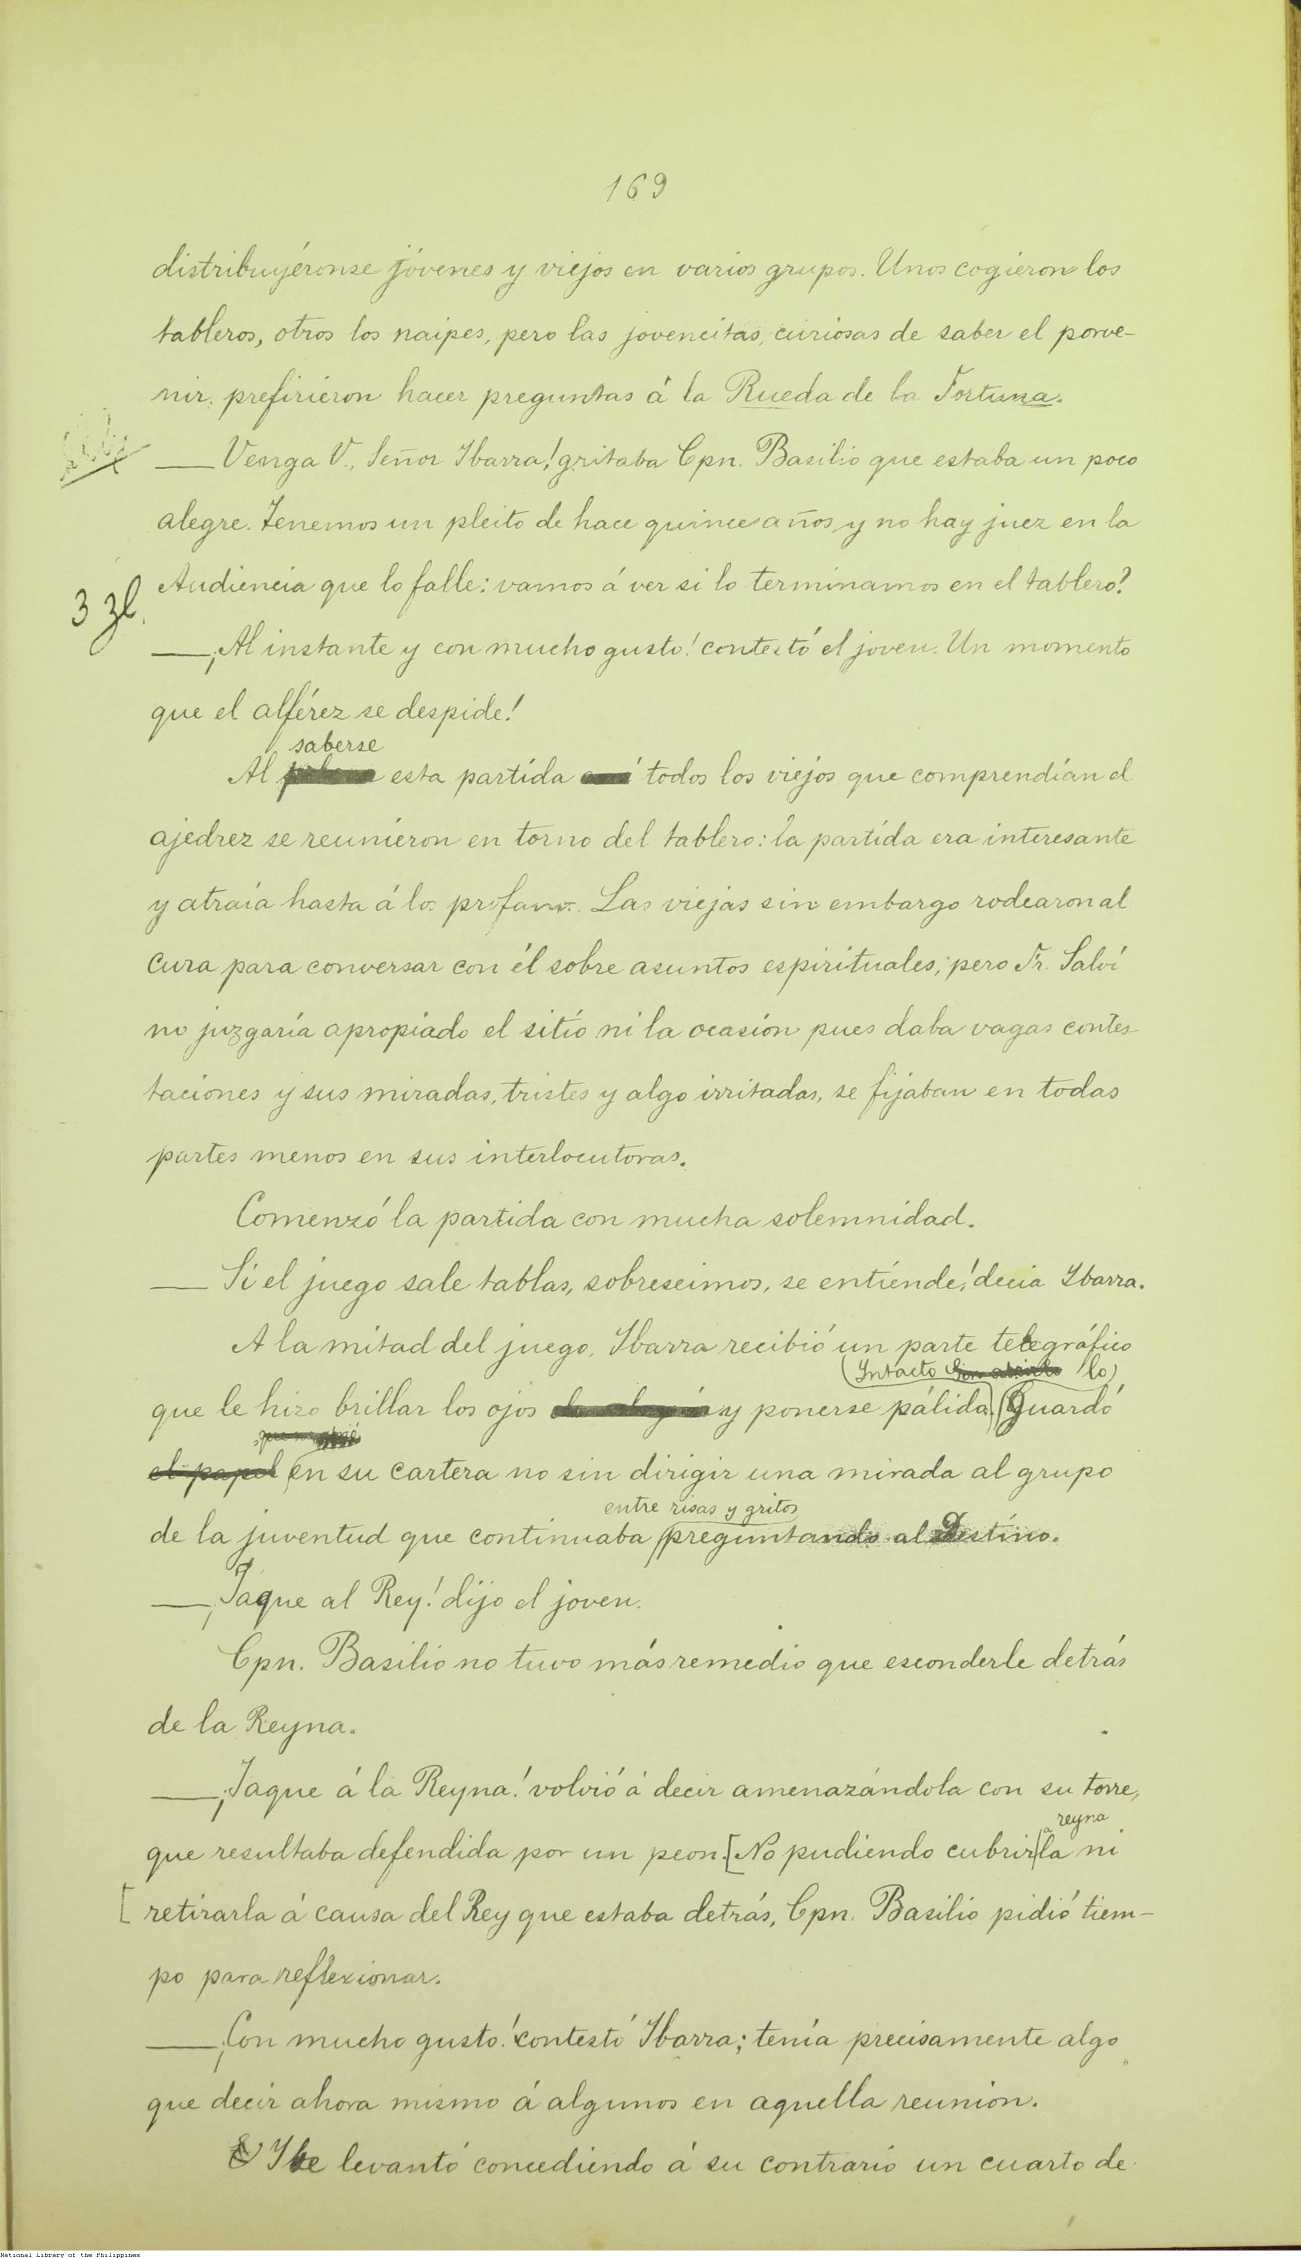 169
distribuyéronse jóvenes y viejos en varios grupos. Unos cogieron los
tableros, otros los naipes, pero las jovencitas, curiosas de saber el porve-
nir, prefirieron hacer preguntas á la Rueda de la Fortuna.
— Venga V., Señor Ibarra! gritaba Cpn. Basilio que estaba un poco
alegre. Tenemos un pleito de hace quince años y no hay juez en la
Audiencia que lo falle: vamos á ver si lo terminamos en el tablero?
3 zl.
— ¡Al instante y con mucho gusto! contestó el joven. Un momento
que el alférez se despide!
saberse
Al esta partida todos los viejos que comprendían el
ajedrez se reunieron en torno del tablero: la partida era interesante
y atraía hasta á los profanos. Las viejas sin embargo rodearon al
cura para conversar con él sobre asuntos espirituales; pero Fr. Salví
no juzgaría apropiado el sitio ni la ocasión pues daba vagas contes-
taciones y sus miradas, tristes y algo irritadas, se fijaban en todas
partes menos en sus interlocutoras.
Comenzó la partida con mucha solemnidad.
— Si el juego sale tablas, sobreseimos, se entiende! decía Ibarra.
A la mitad del juego, Ibarra recibió un parte telegráfico
(Intacto sin abrirlo lo)
que le hizo brillar los ojos y ponerse pálida. Guardó
el papel en su cartera no sin dirigir una mirada al grupo
entre risas y gritos
de la juventud que continuaba preguntando al Destino.
— ¡Jaque al Rey! dijo el joven.
Cpn. Basilio no tuvo más remedio que esconderle detrás
de la Reyna.
— ¡Jaque á la Reyna! volvió á decir amenazándola con su torre,
a reyna
que resultaba defendida por un peon. [No pudiendo cubrir la ni
[ retirarla á causa del Rey que estaba detrás, Cpn. Basilio pidió tiem-
po para reflexionar.
— ¡Con mucho gusto! contestó Ibarra; tenía precisamente algo
que decir ahora mismo á algunos en aquella reunion.
Y se levantó concediendo á su contrario un cuarto de
National Library of the Philippines